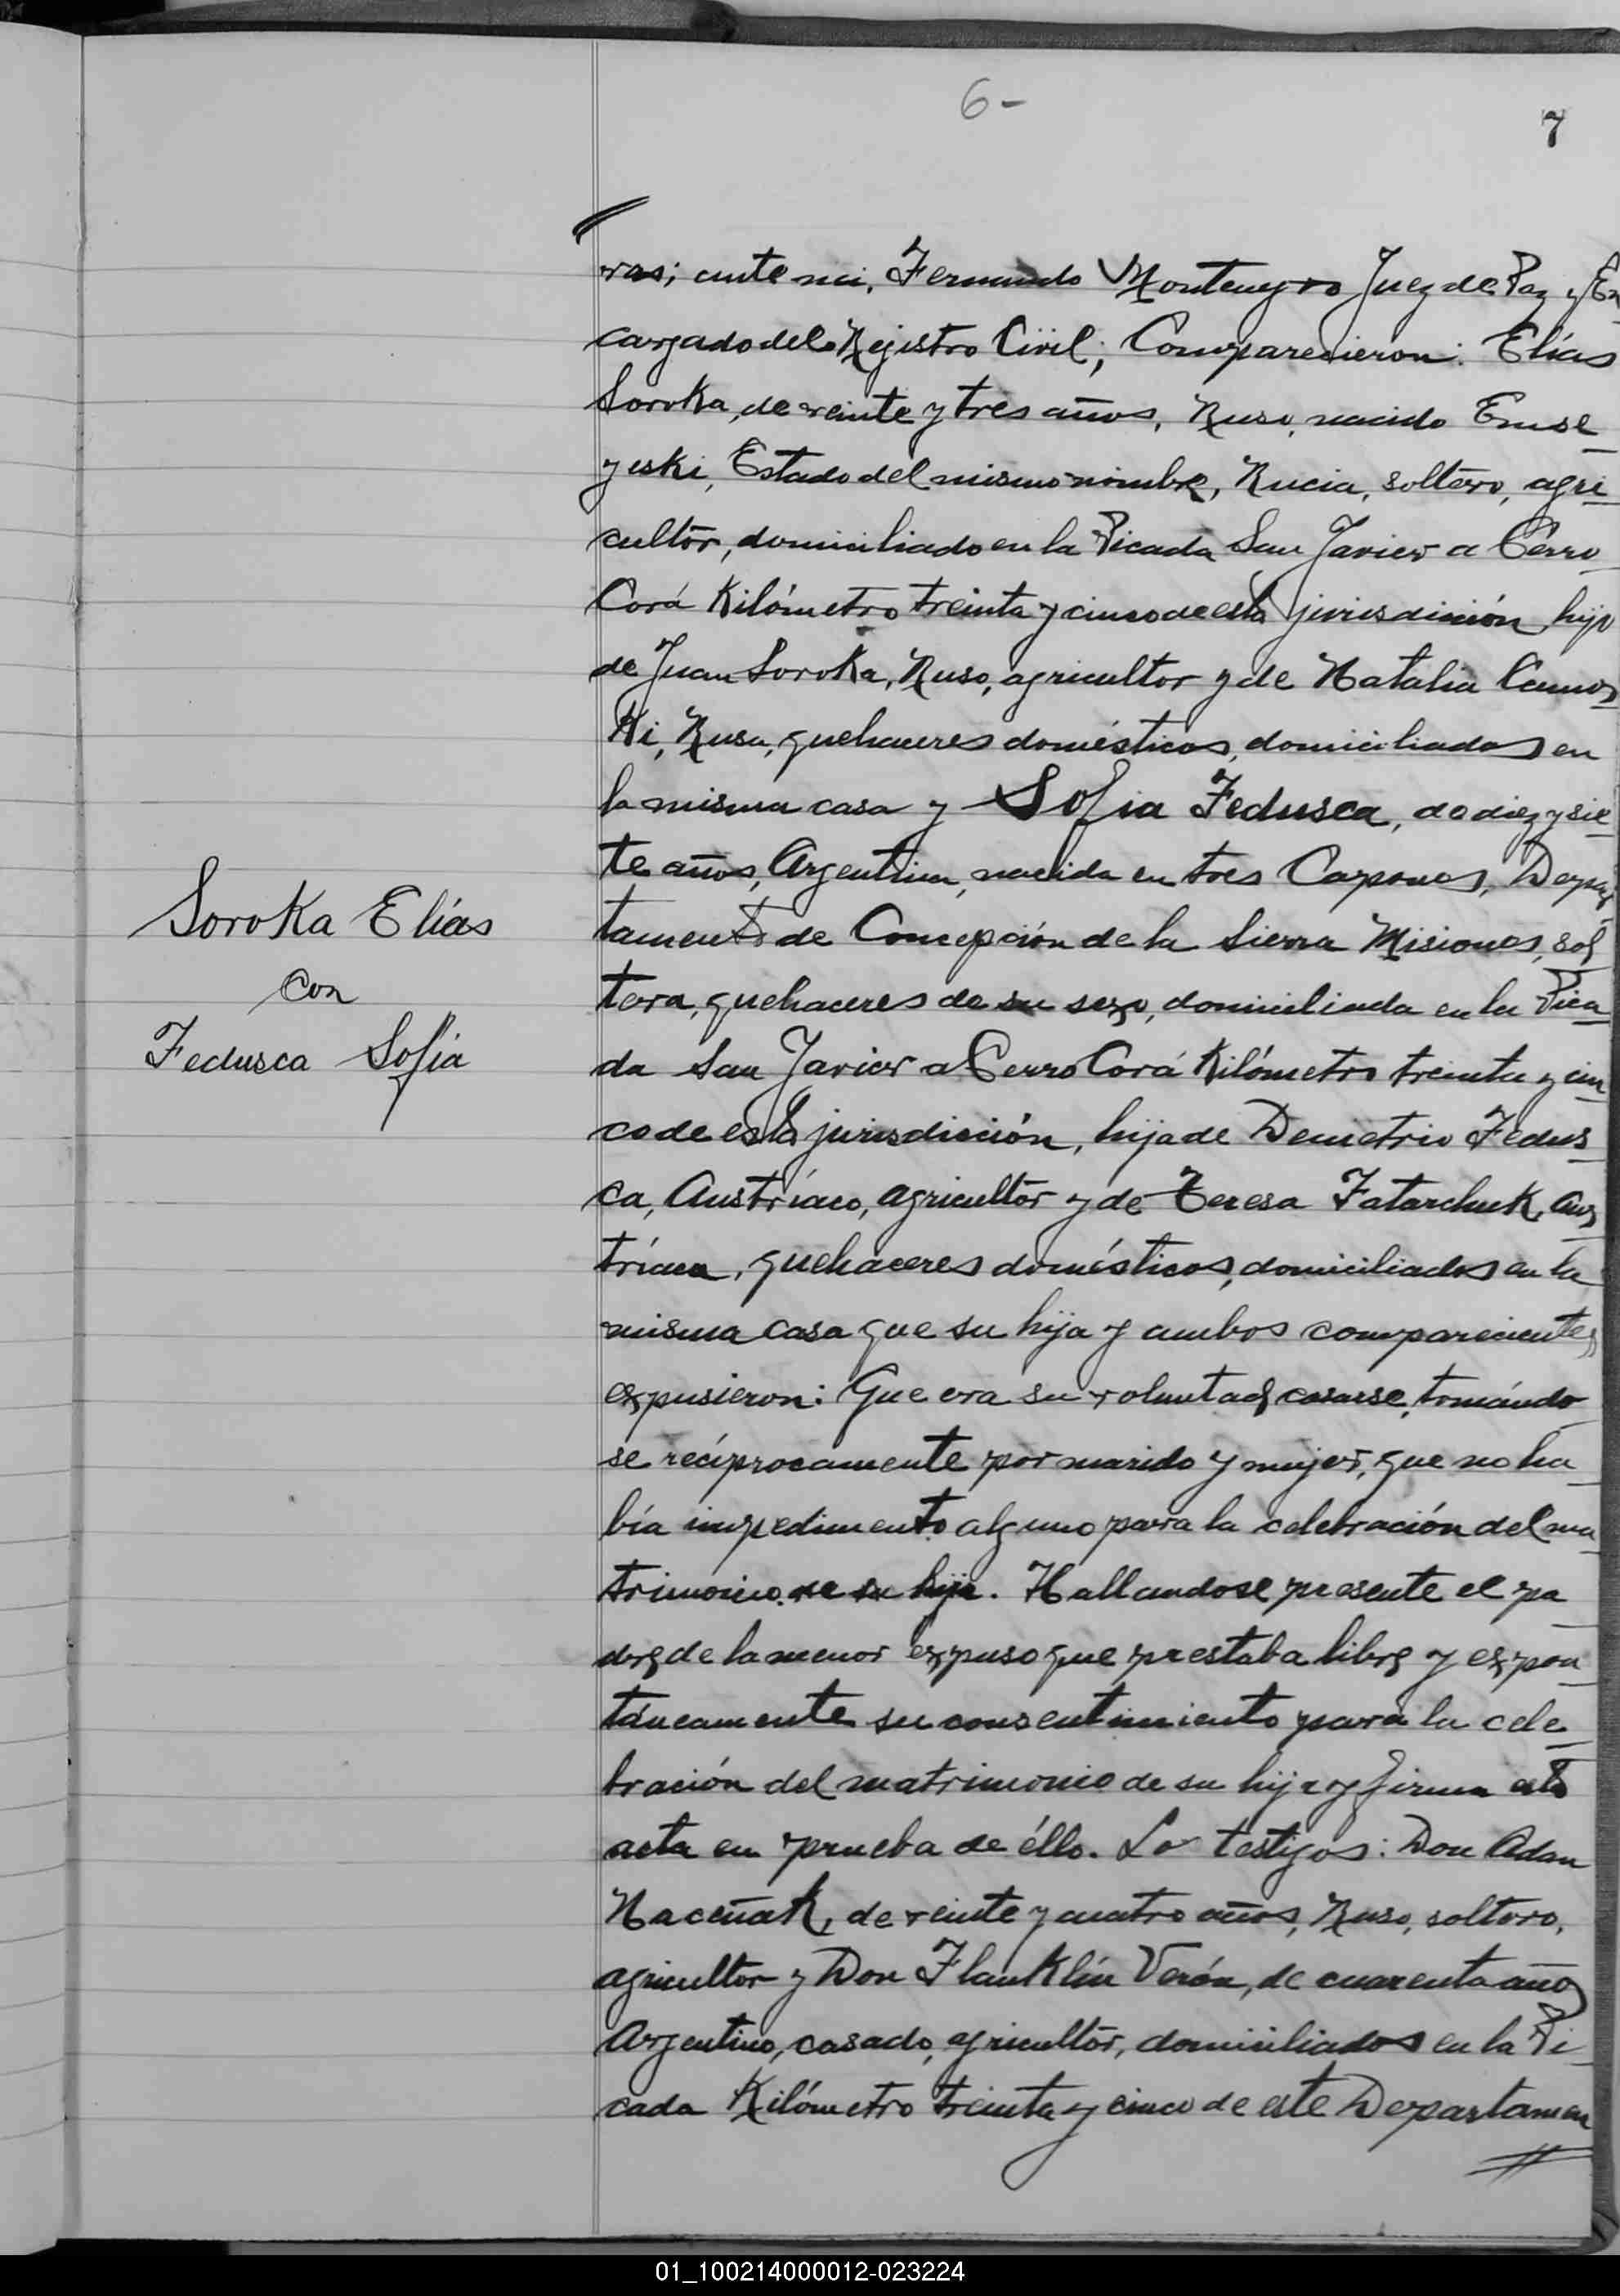 6-
7
ras; ante mi, Fernando Montenegro Juez de Paz y En
cargado del Rejistro Civil; Comparecieron: Elías
Soroka, de veinte y tres años, Ruso, nacido Emse
yeski, Estado del mismo nombre, Rucia, soltero, agri
cultor, domiciliado en la Picada San Javier a Cerro
Corá Kilómetro treinta y cinco de esta jurisdición hijo
de Juan Soroka, Ruso, agricultor y de Natalia
Ki, Rusa, quehaceres domésticos, domiciliados en
la misma casa y Sofia Fedusca, de diez y sie
te años, Argentina, nacida en tres Capones, Depar
tamento de Concepción de la Sierra Misiones, sol
tera, quehaceres de su sexo, domiciliada en la Pica
da San Javier a Cerro Corá Kilómetro treinta y cin
co de esta jurisdición, hija de Demetrio Fedus
ca, Austríaco, agricultor y de Teresa Fatarchuk, Aus
tríaca, quehaceres domésticos, domiciliados en la
misma casa que su hija y ambos comparecientes
expusieron: Que era su voluntad casarse, tomándo
se recíprocamente por marido y mujer, que no ha
bía impedimento alguno para la celebración del ma
trimonio de su hija. Hallandose presente el pa
dre de la menor expuso que prestaba libre y expon
táneamente su consentimiento para la cele
bración del matrimonio de su hija y firma esta
acta en prueba de éllo. Los testigos: Don Adan
Naceñak, de veinte y cuatro años, Ruso, soltero,
agricultor y Don Flanklín Verón, de cuarenta años
Argentino, casado, agricultor, domiciliados en la Pi
cada Kilómetro treinta y cinco de este Departamen
Soroka Elías
con
Fedusca Sofía
01_100214000012-023224